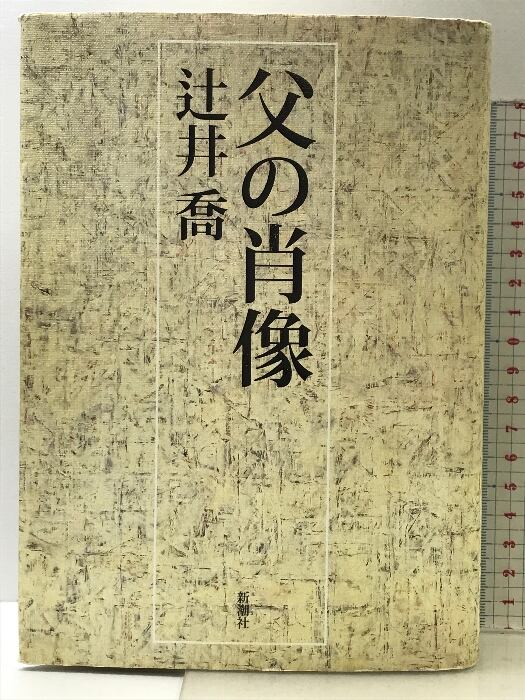 父の肖像
辻井喬
新潮社
8
7
6
5
4
3
2
1
0
9
8
7
6
5
4
3
2
1